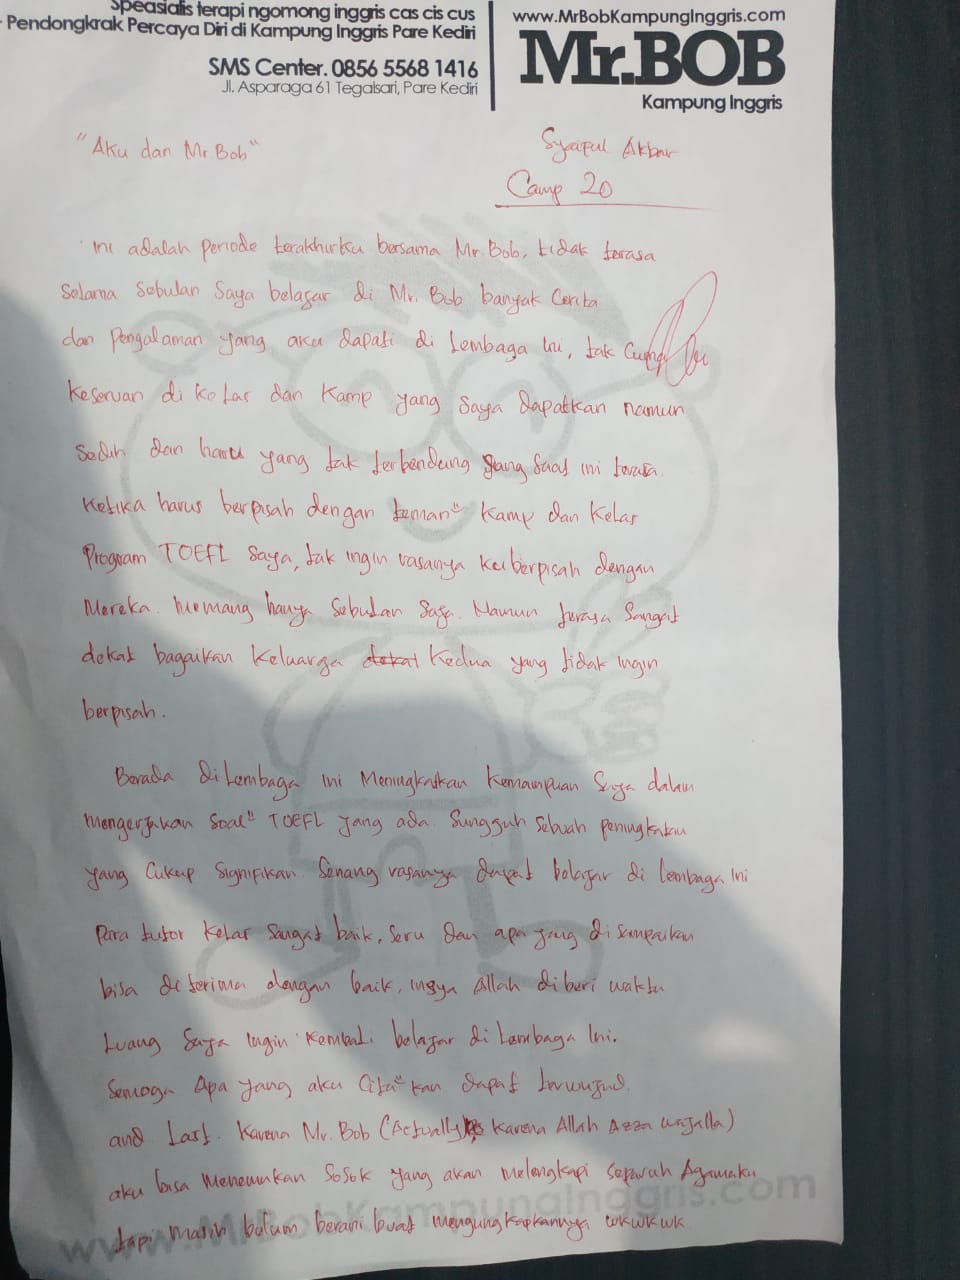 Speasialis terapi ngomong inggris cas cis cus
Pendongkrak Percaya Diri di Kampung Inggris Pare Kediri
SMS Center. 0856 5568 1416
Jl. Asparaga 61 Tegalsari, Pare Kediri
www.MrBobKampungInggris.com
Mr.BOB
Kampung Inggris
"Aku dan Mr Bob"
Syaiful Akbar
Camp 20
Ini adalah periode terakhirku bersama Mr.Bob, tidak terasa
Selama Sebulan Saya belajar di Mr. Bob banyak Cerita
dan Pengalaman yang aku dapati di Lembaga Ini, tak Cuma
Keseruan di kelas dan Kamp yang Saya dapatkan namun
Sedih dan haru yang tak terbendung yang Saat ini terasa
Ketika harus berpisah dengan teman" Kamp dan Kelas
Program TOEFL Saya, tak ingin rasanya ku berpisah dengan
Mereka. Memang hanya Sebulan Saja. Namun terasa Sangat
dekat bagaikan Keluarga dekat Kedua yang tidak Ingin
berpisah.
Berada di Lembaga ini Meningkatkan Kemampuan Saya dalam
Mengerjakan Soal" TOEFL yang ada. Sungguh Sebuah peningkatan
yang Cukup Signifikan. Senang rasanya dapat belajar di Lembaga Ini
Para tutor Kelas Sangat baik, Seru dan apa yang di Sampaikan
bisa di terima dengan baik, insya Allah diberi waktu
Luang Saya Ingin Kembali belajar di Lembaga Ini.
Semoga Apa yang aku Cita" kan dapat terwujud.
and Last. Karena Mr. Bob (Actually Karena Allah Azza wajalla)
aku bisa Menemukan Sosok yang akan Melengkapi Separuh Agamaku
tapi Masih belum berani buat mengungkapkannya wkwkwk
www.MrBobKampungInggris.com